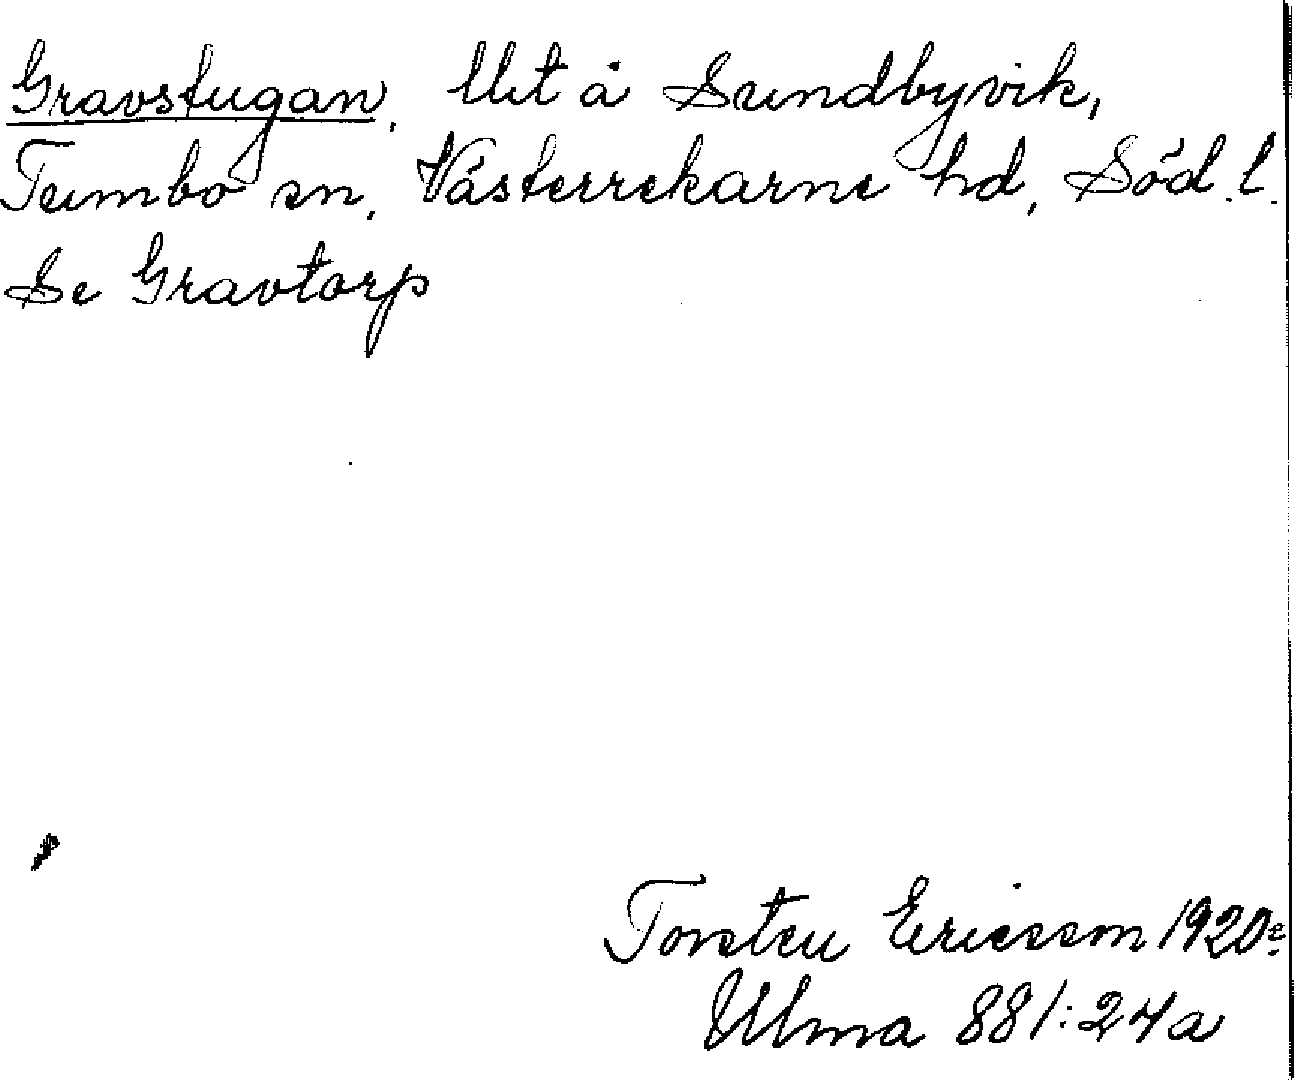 Gravstugan, Utet å Sundbyvik,
Tumbo sn, Västerrekarne hd, Söd.l.
Se Gravtorp
Torsten Ericsson 1920
Ulma 881:24a